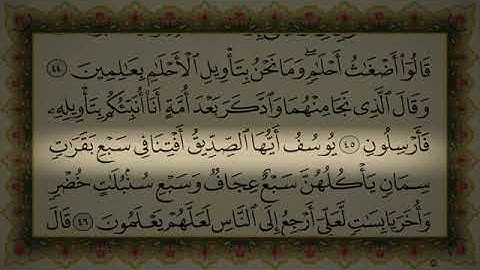 قَالُوٓا۟ أَضْغَـٰثُ أَحْلَـٰمٍ ۖ وَمَا نَحْنُ بِتَأْوِيلِ ٱلْأَحْلَـٰمِ بِعَـٰلِمِينَ ٤٤
وَقَالَ ٱلَّذِى نَجَا مِنْهُمَا وَٱدَّكَرَ بَعْدَ أُمَّةٍ أَنَا۠ أُنَبِّئُكُم بِتَأْوِيلِهِۦ
فَأَرْسِلُونِ ٤٥ يُوسُفُ أَيُّهَا ٱلصِّدِّيقُ أَفْتِنَا فِى سَبْعِ بَقَرَٰتٍ
سِمَانٍ يَأْكُلُهُنَّ سَبْعٌ عِجَافٌ وَسَبْعِ سُنۢبُلَـٰتٍ خُضْرٍ
وَأُخَرَ يَابِسَـٰتٍ لَّعَلِّىٓ أَرْجِعُ إِلَى ٱلنَّاسِ لَعَلَّهُمْ يَعْلَمُونَ ٤٦ قَالَ